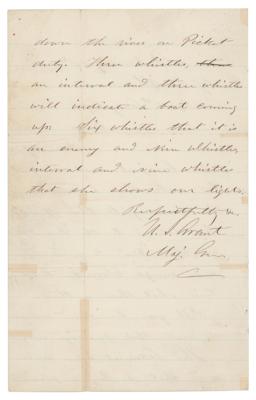 down the river on Picket
duty. Three whistles,
an interval and three whistles
will indicate a boat coming
up. Six whistles that it is
an enemy and nine whistles,
interval and nine whistles
that she shows our lights.
Respectfully &c.
U. S. Grant
Maj. Gen.